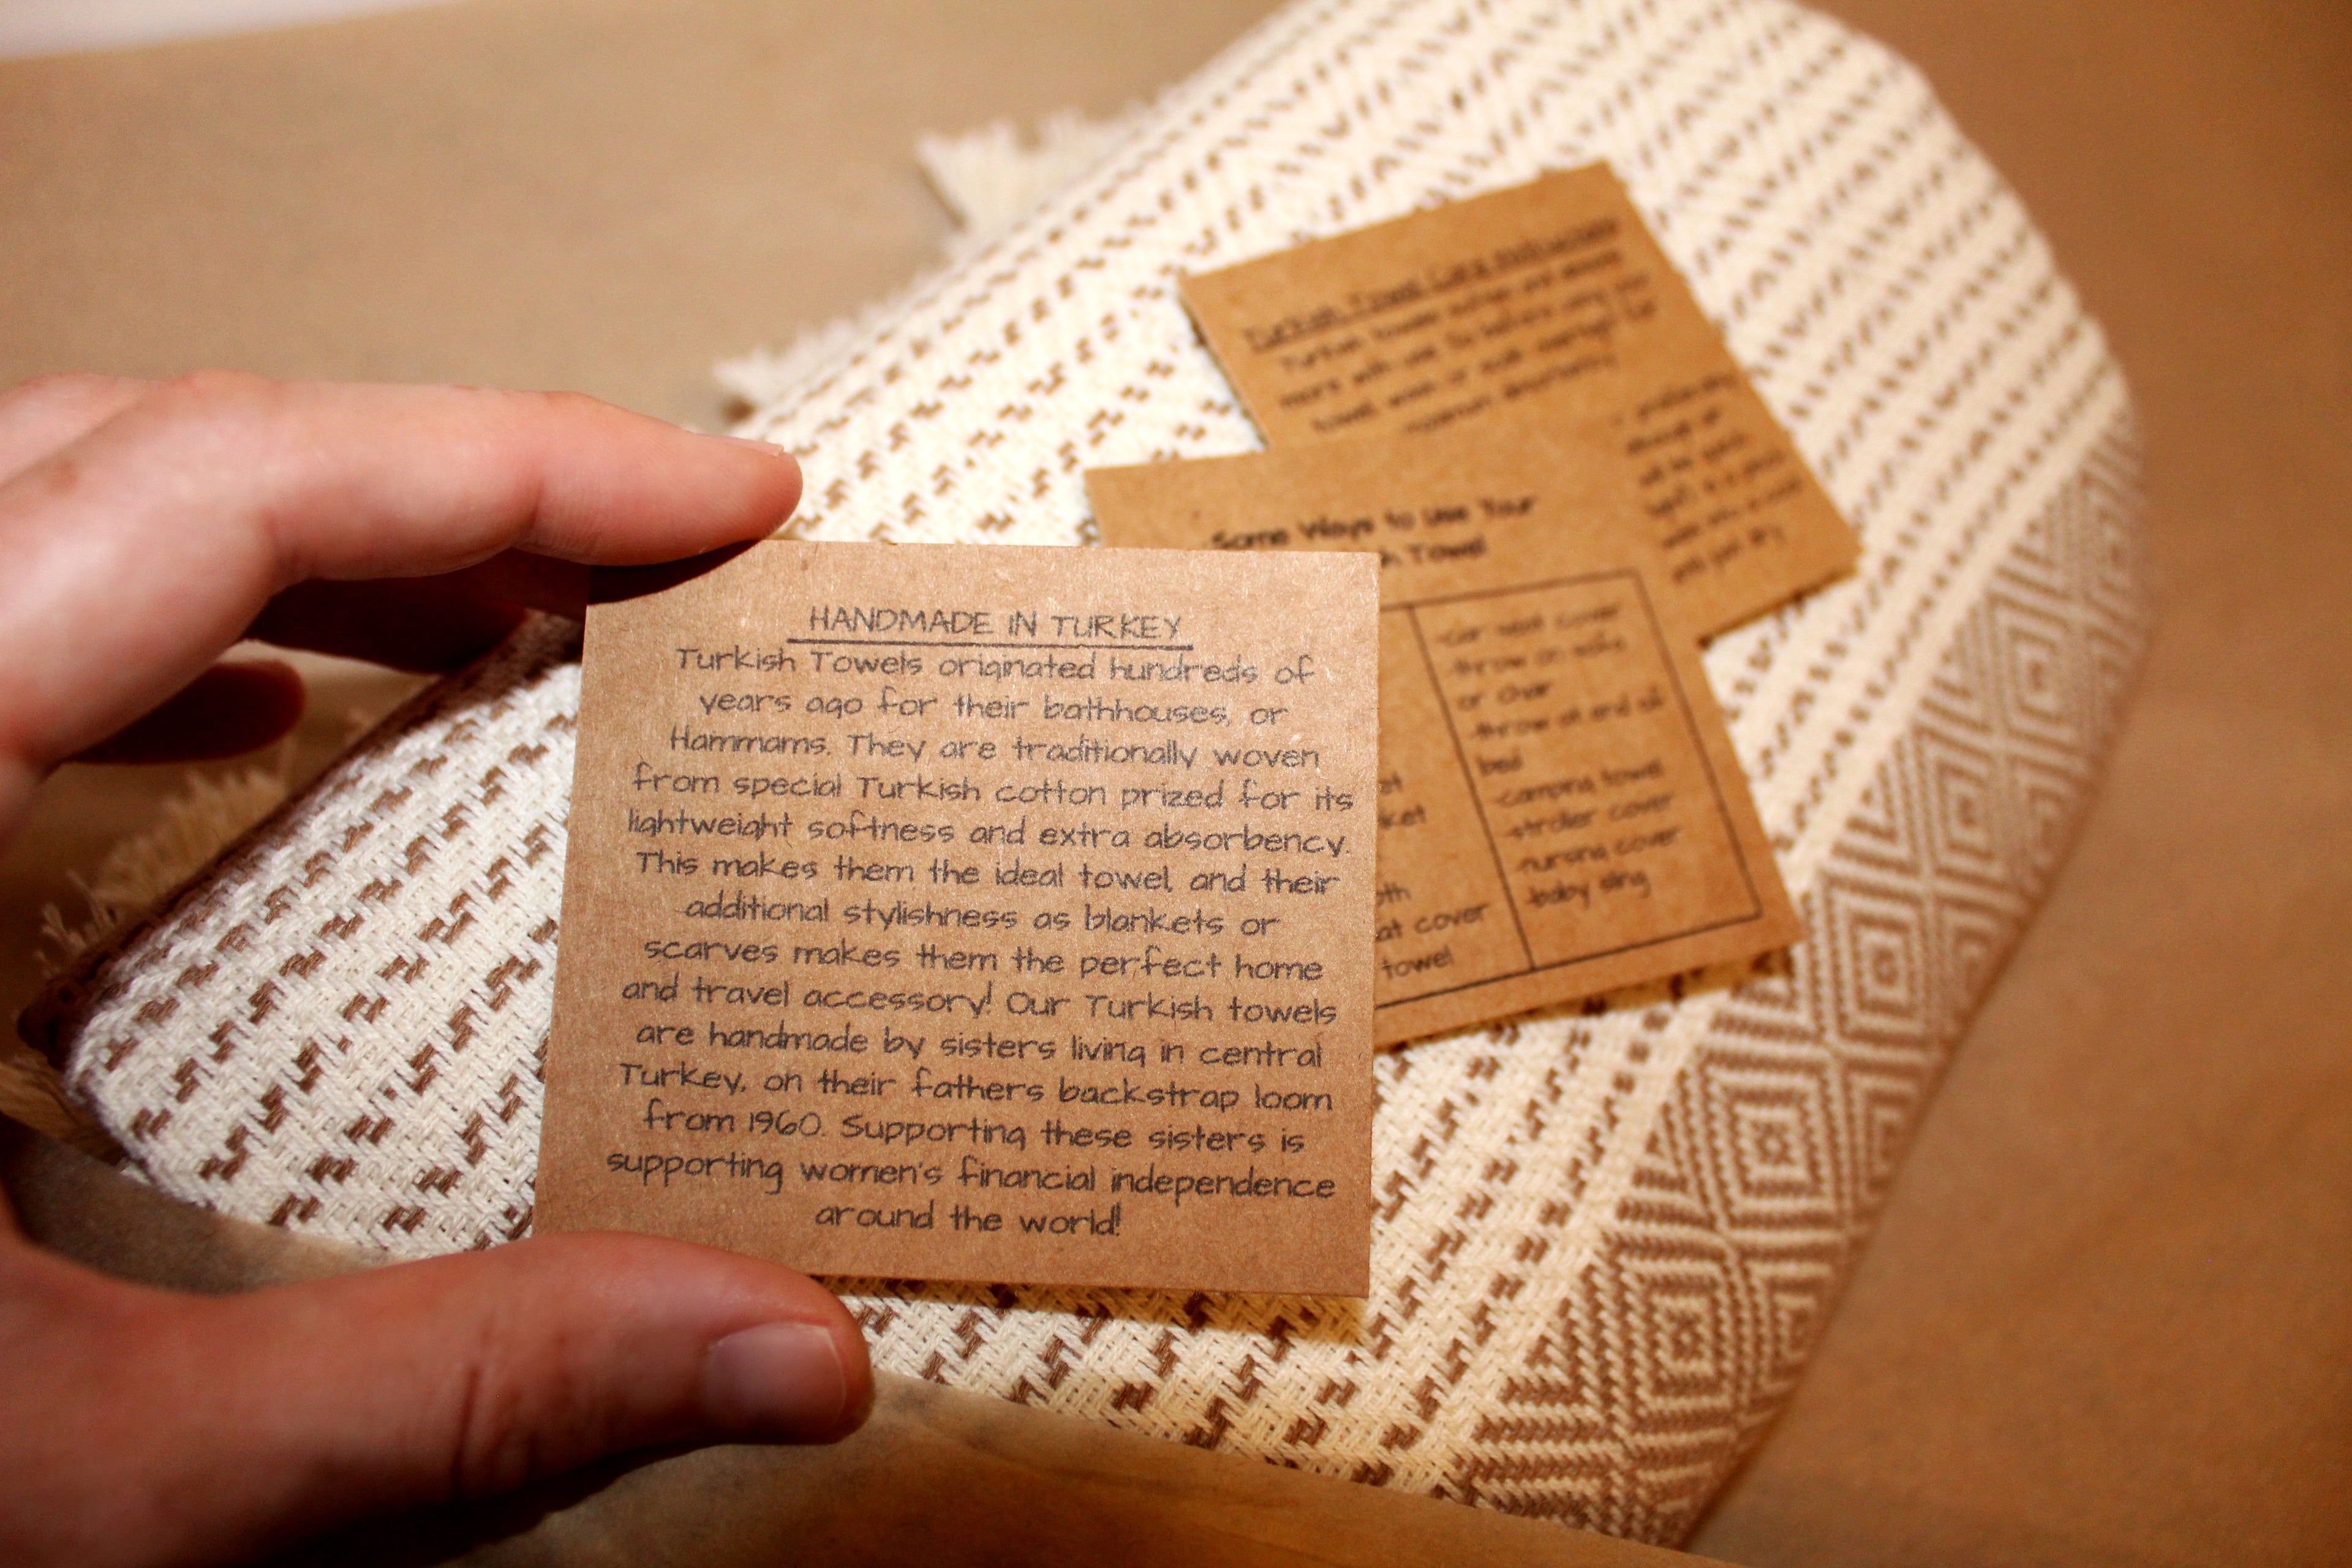 HANDMADE IN TURKEY
Turkish Towels originated hundreds of
years ago for their bathhouses, or
Hammams. They are traditionally woven
from special Turkish cotton prized for its
lightweight softness and extra absorbency.
This makes them the ideal towel, and their
additional stylishness as blankets or
scarves makes them the perfect home
and travel accessory! Our Turkish towels
are handmade by sisters living in central
Turkey, on their fathers backstrap loom
from 1960. Supporting these sisters is
supporting women's financial independence
around the world!
Some Ways to Use Your
Towel
cover
towel
-car seat cover
-throw on sofa
or chair
-throw at end of
bed
-camping towel
-stroller cover
-nursing cover
-baby sling
Turkish Towel Care Instructions
Turkish towels soften and absorb
more with use. So before using your